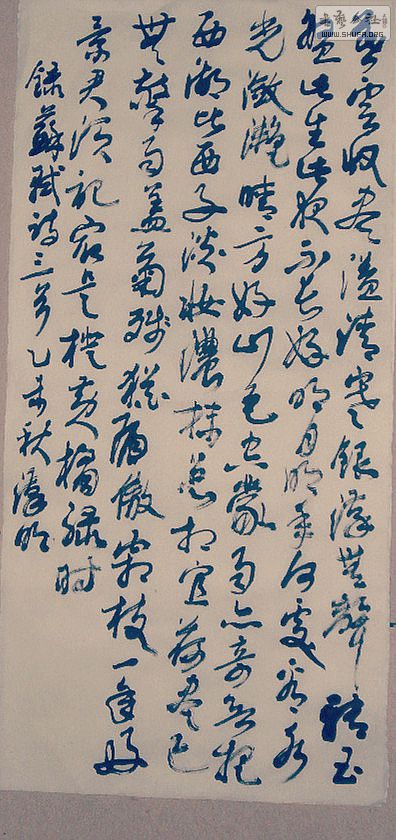 暮雲收盡溢清寒銀漢無聲轉玉
盤此生此夜不長好明月明年何處看水
光瀲灧晴方好山色空蒙雨亦奇欲把
西湖比西子淡妝濃抹总相宜荷盡已
無擎雨蓋菊殘猶有傲霜枝一年好
景君須記最是橙黃橘綠時
錄蘇軾詩三首乙未秋漢明
WWW.SHUFA.ORG